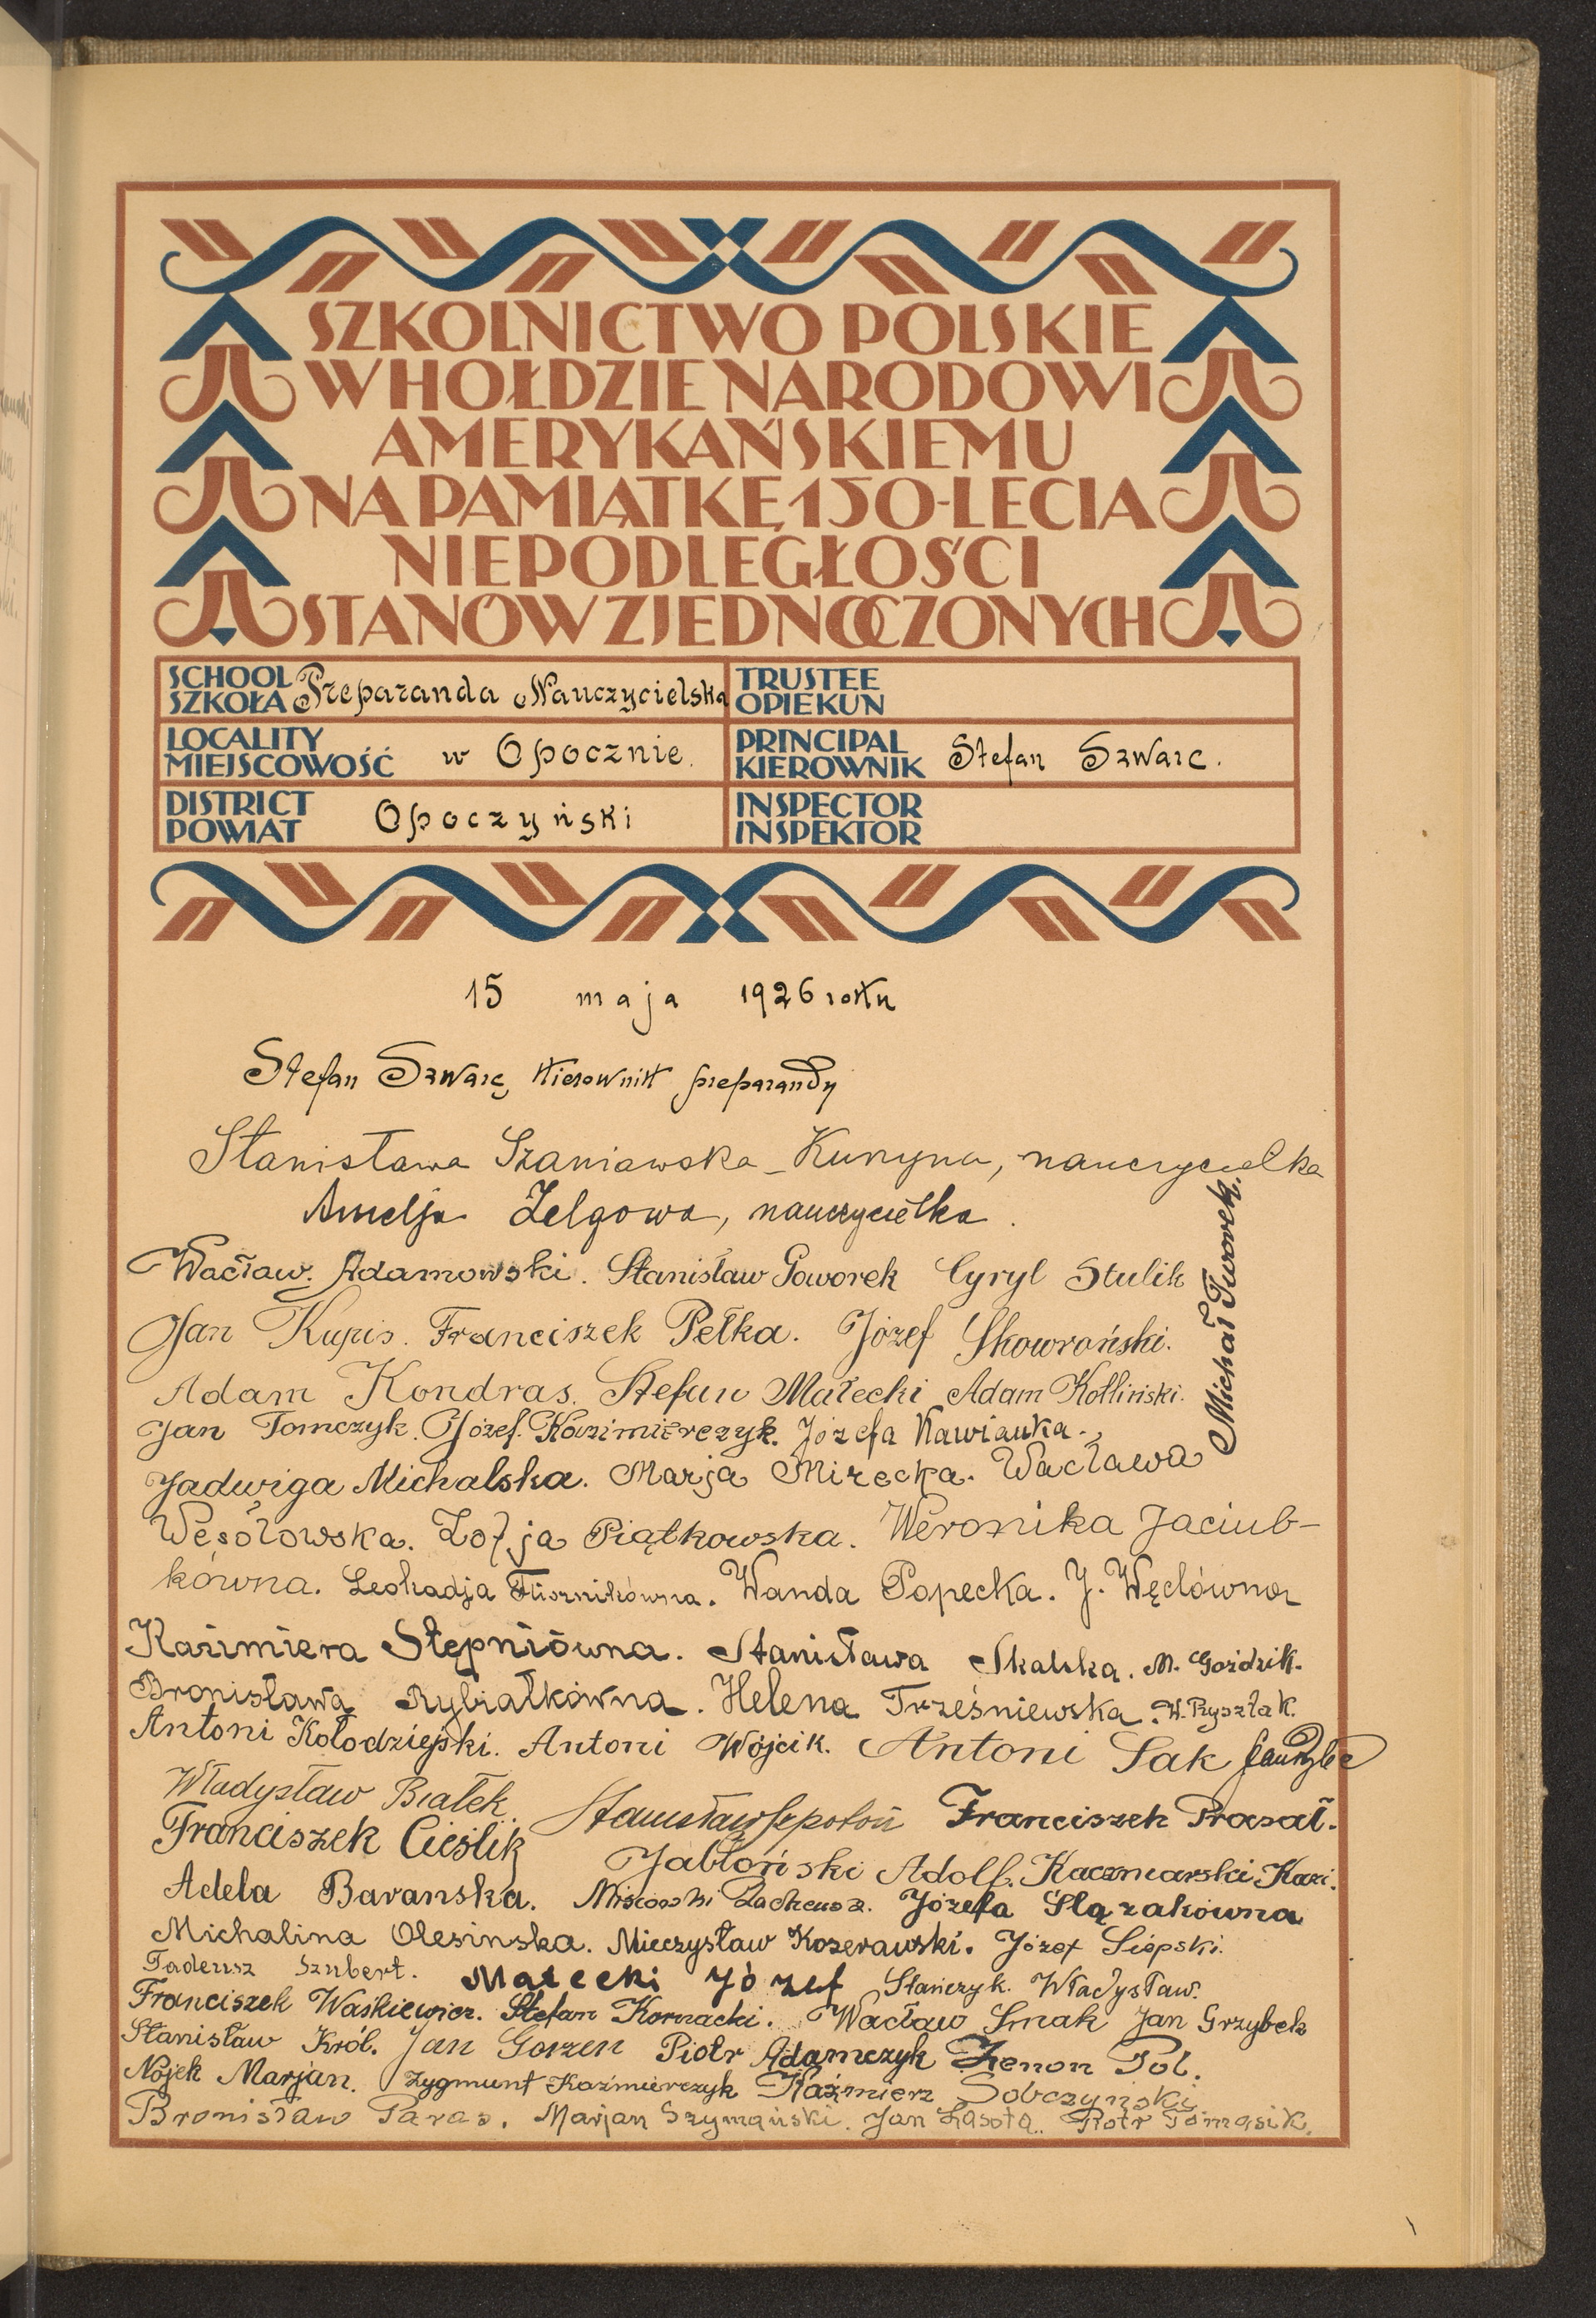 SZKOLNICTWO POLSKIE
W HOŁDZIE NARODOWI
AMERYKAŃSKIEMU
NA PAMIĄTKĘ 150-LECIA
NIEPODLEGŁOŚCI
STANÓW ZJEDNOCZONYCH
SCHOOL
SZKOŁA Preparanda Nauczycielska
TRUSTEE
OPIEKUN
LOCALITY
MIEJSCOWOŚĆ w Opocznie.
PRINCIPAL
KIEROWNIK Stefan Szwarc.
DISTRICT
POWIAT Opoczyński
INSPECTOR
INSPEKTOR
15 maja 1926 roku
Stefan Szwarc, kierownik preparandy
Stanisława Szaniawska-Kunyna, nauczycielka
Amelja Zelgowa, nauczycielka.
Wacław Adamowski. Stanisław Goworek Cyryl Stulik
Michał Tworek.
Jan Kupis. Franciszek Pełka. Józef Skowroński.
Adam Kondras. Stefan Małecki Adam Kotliński.
Jan Tomczyk. Józef Kazimierczyk. Józefa Kawianka.
Jadwiga Michalska. Marja Mirecka. Wacława
Wesołowska. Zofja Piątkowska. Weronika Jaciub-
kówna. Leokadja Wanda Popecka. J. Węclówna
Kazimiera Stępniówna. Stanisława Skalska. M. Goździk.
Bronisława Rybiałkówna. Helena Trześniewska. W. Ryszłak.
Antoni Kołodziejski. Antoni Wójcik. Antoni Sak
Władysław Białek. Stanisław Franciszek Prasał.
Franciszek Cieślik Jabłoński Adolf. Kaczmarski Kazi.
Adela Baranska. Józefa Ślązakówna
Michalina Olesinska. Mieczysław Kozerawski. Józef Siepski.
Tadeusz Szubert. Małecki Józef Stańczyk Władysław.
Franciszek Waśkiewicz. Stefan Kornacki. Wacław Smak Jan Grzybek
Stanisław Król. Jan Gorzen Piotr Adamczyk Zenon Pol.
Nojek Marjan. Zygmunt Kaźmierczyk Kaźmierz Sobczyński
Bronisław Paras. Marjan Szymański. Jan Lasota. Piotr Tomasik.